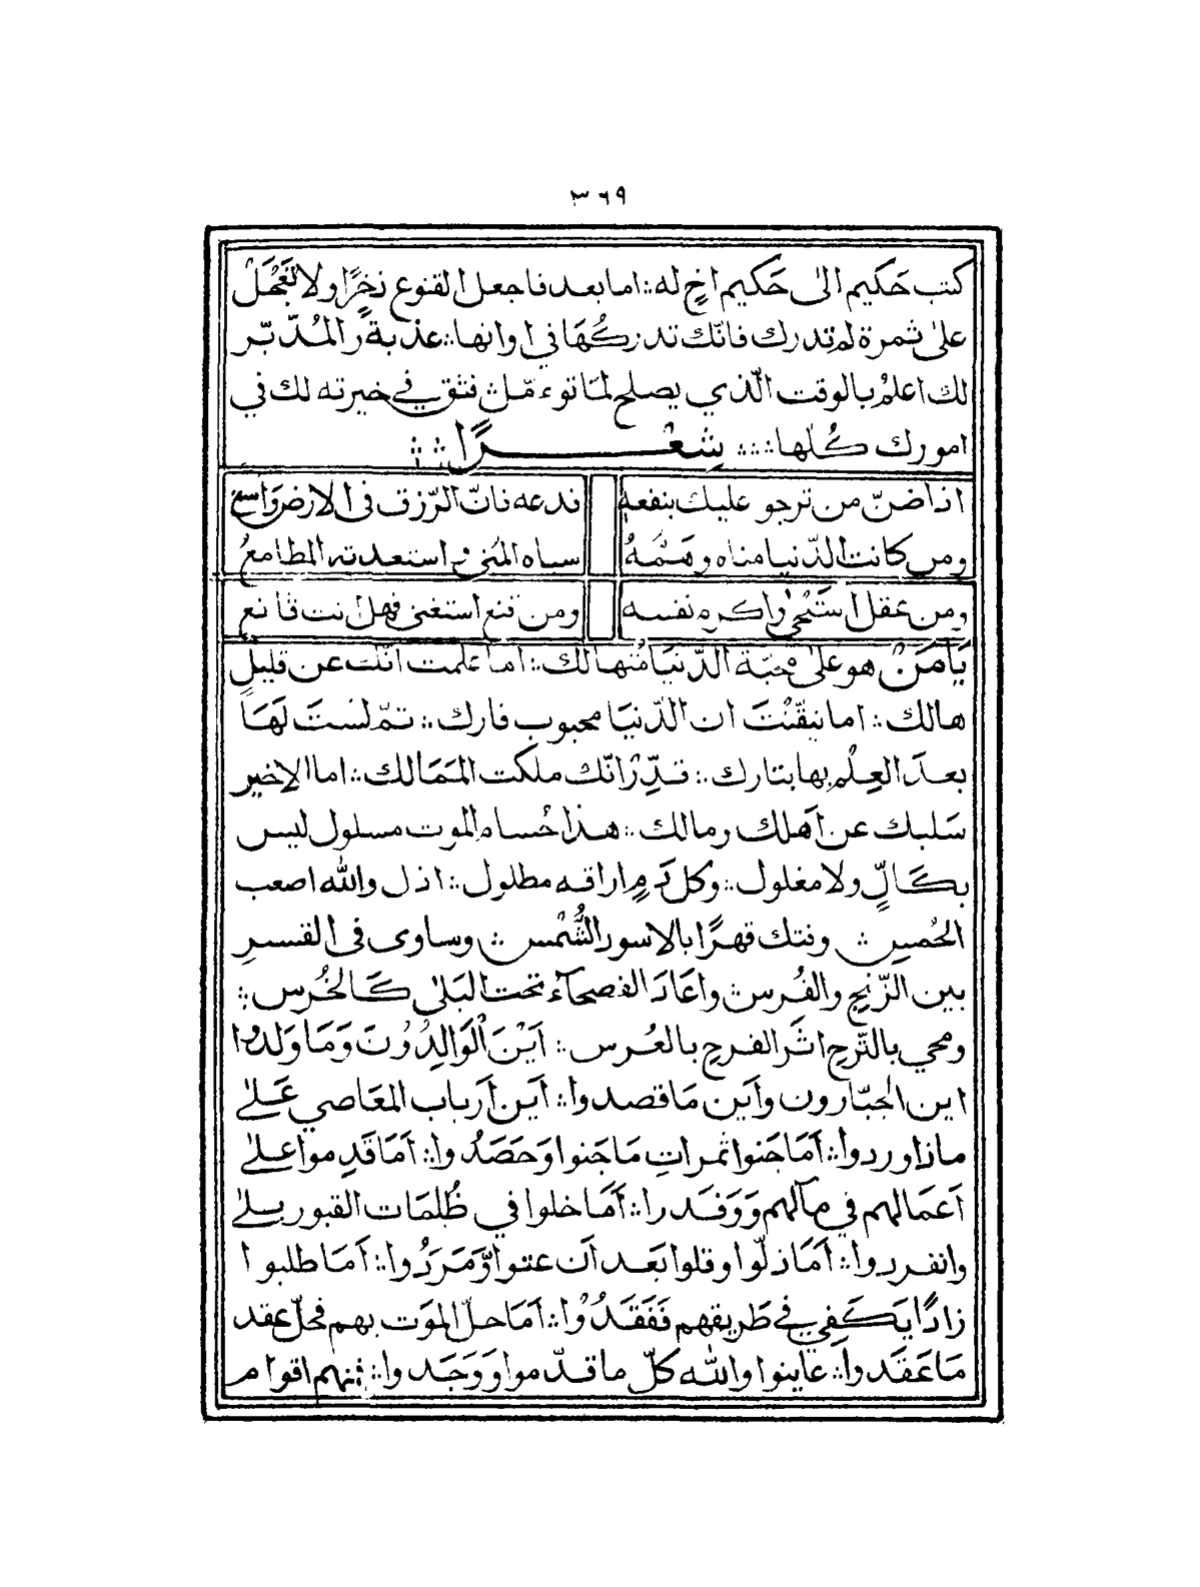 ٣٦٩
كتب حَكيم الىٰ حَكيم اخٍ له :: اما بعد فاجعل القنوع ذخرًا ولا تَعْجَلْ
علىٰ ثمرة لم تدرك فانّك تدركُهَا في اوانها :: عذبةً والمُدبّر
لك اعلمُ بالوقت الّذي يصلح لمَا توءمّل فثق في خيرته لك في
امورك كُلها ::: شِعْرًا ::
اذا ضنّ من ترجو عليك بنفعه فدعه فانّ الرّزق فى الارض وَاسع
ومن كانت الدّنيا مناه وهَمُّهُ سباه المُنى واستعبدته المطامعُ
ومن عقل استَحْيٰ واكرم نفسه ومن قنع استغنى فهل انت قانع
يَا مَنْ هو علىٰ محبّة الدّنيَا مُتهالك :: اما علمت انّك عن قليلٍ
هالك :: اما تيقّنْتَ ان الدّنيَا محبوب فارك :: ثمّ لستَ لَهَا
بعدَ العِلْم بها بتارك :: قدِّرْ انّك ملكت المَمَالك :: اما الاخير
سَلبك عن اَهلك ومالك :: هذا حُسام الموت مسلول ليس
بكَالٍّ ولا مغلول :: وكل دَمٍ اراقه مطلول :: اذل والله اصعب
الحُمسِ :: وفتك قهرًا بالاسود الشُّمْسِ :: وساوى فى القسرِ
بين الزّنجِ والفُرس :: واعَادَ الفصحآء تحت البَلىٰ كَالخُرس ::
ومحي بالتّرحِ اثَر الفرحِ بالعُرس :: اَيْنَ اْلوَالِدُوْنَ وَمَا وَلدوا
اين الجبّارون واَين مَا قصدوا :: اَين اَرباب المعَاصي عَلىٰ
ماذا وردوا :: اَمَا جَنوا ثمراتِ مَا جَنوا وَحَصَدُوا :: اَمَا قَدِموا علىٰ
اَعمَالهم في مآلهم وَوَفَدوا :: اَمَا خلوا في ظُلمَات القبور بلىٰ
وانفردوا :: اَمَا ذلّوا وقلوا بَعد اَن عتوا وَّمَرَدُوا :: اَمَا طلبوا
زادًا يَكَفِي في طَريقهم فَفَقَدُوْا :: اَمَا حلّ الموَت بهم فحلّ عقد
مَا عَقَدوا :: عاينوا والله كلّ ما قدّموا وَوَجَدوا :: فمنهم اقوام